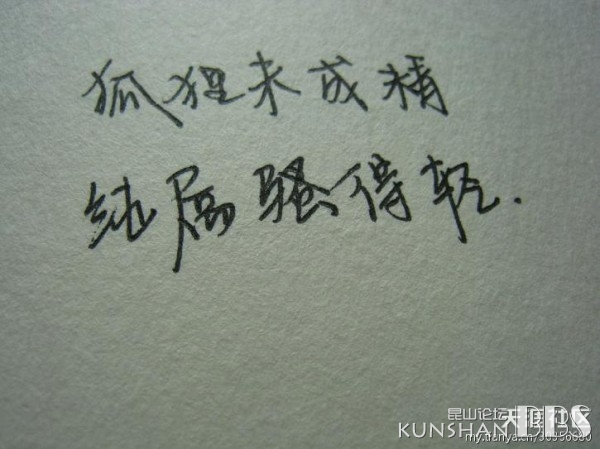 狐狸未成精
纯属骚得轻.
昆山论坛
天涯社区
KUNSHAN BBS